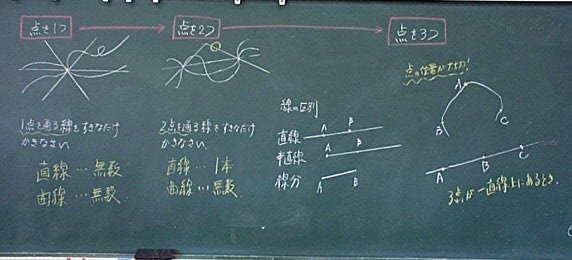 点を1つ
点を2つ
点を3つ
1点を通る線をすきなだけ
かきなさい。
直線…無数
曲線…無数
2点を通る線をすきなだけ
かきなさい。
直線…1本
曲線…無数
線の区別
直線 A B
半直線 A B
線分 A B
点の位置が大切!
A
B
C
A B C
3点が一直線上にあるとき。